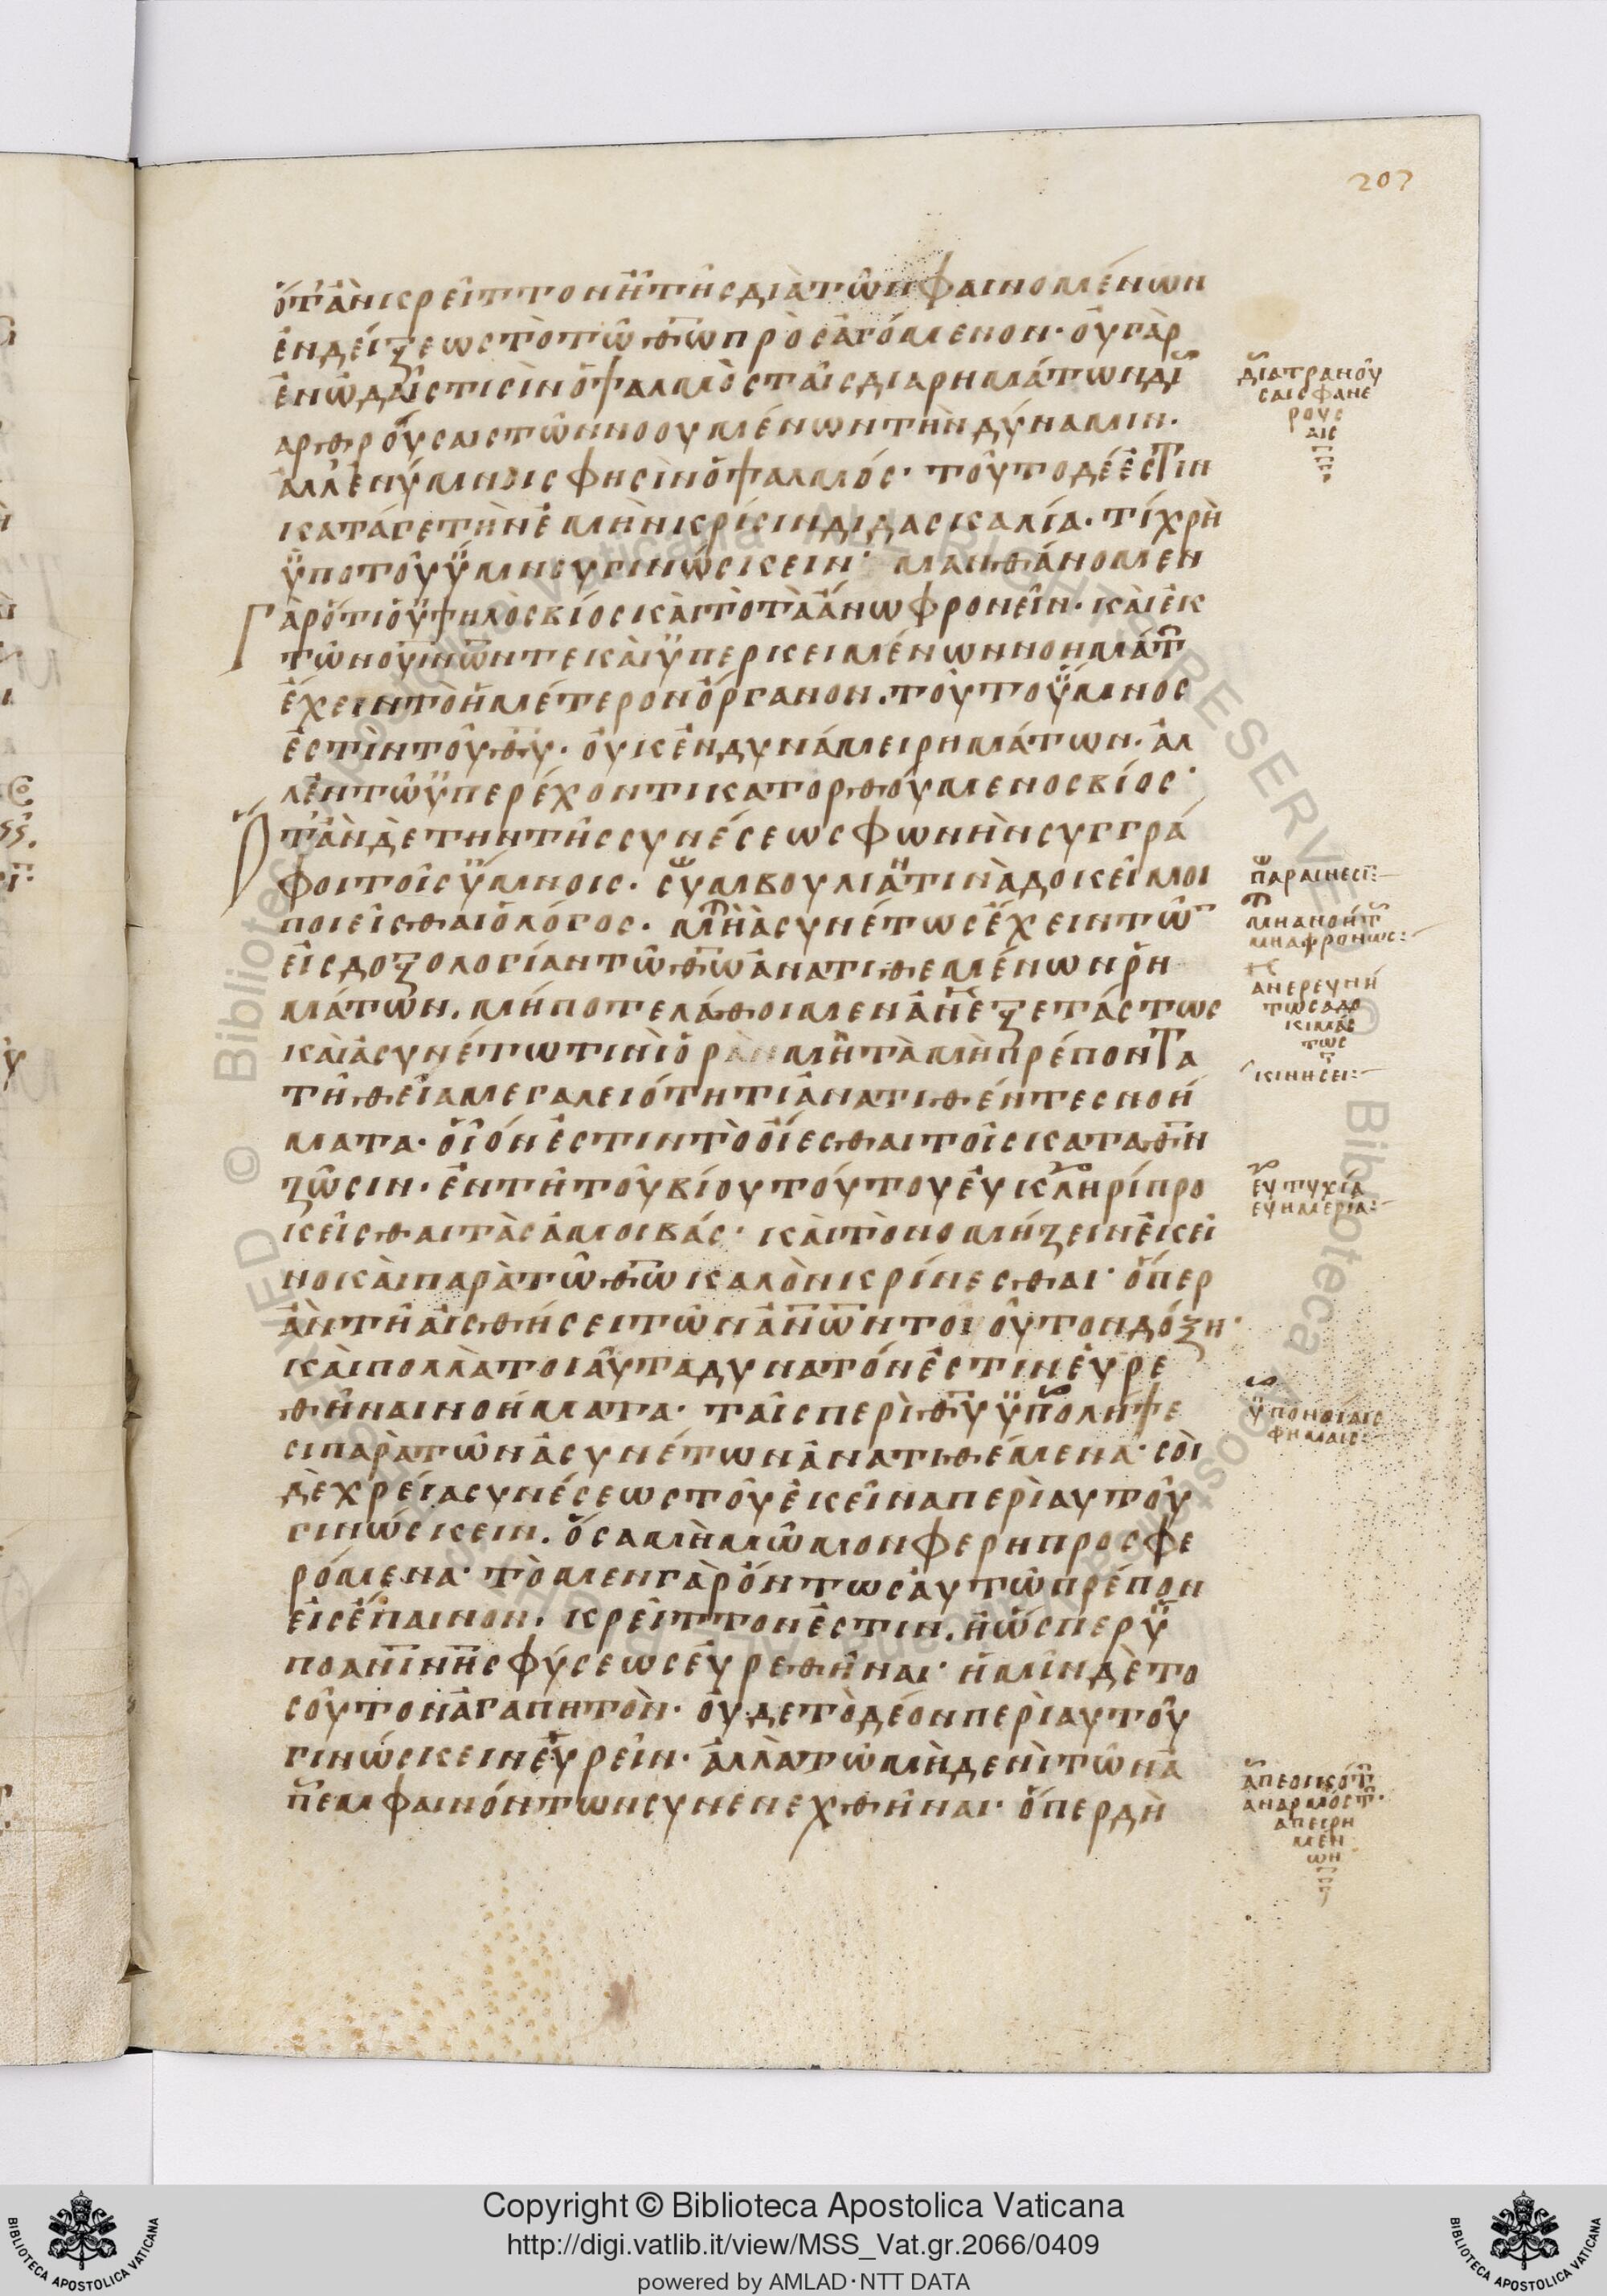 203
ὅτ' ἂν κρεῖττον ἢ τῆς διὰ τῶν φαινομένων
ἐνδείξεως τὸ τῷ θ̅ω̅ προσαγόμενον· οὐ γὰρ
ἐν ὠδαῖς τισὶν ὁ ψαλμὸς ταῖς διὰ ρημάτων δι
αρθρούσαις τῶν νοουμένων τὴν δύναμιν.
ἀλλ' ἐν ὕμνοις φησὶν ὁ ψαλμός· τοῦτο δέ ἐστιν
κατά γε τὴν ἐμὴν κρίσιν διδασκαλία. τί χρὴ
ὑπὸ τοῦ ὕμνου γινώσκειν· μανθάνομεν
γὰρ ὅτι ὁ ὑψηλὸς βίος καὶ τὸ τὰ ἄνω φρονεῖν. καὶ ἐκ
τῶν ο̅υ̅ν̅ω̅ν̅ τε καὶ ὑπερκειμένων νοημάτ
ἔχειν τὸ ἡμέτερον ὄργανον. τοῦτο ὕμνος
ἐστὶν τοῦ θ̅υ̅· οὐκ ἐν δυνάμει ρημάτων. ἀλ
λ' ἐν τῷ ὑπερέχοντι κατορθούμενος βίος·
ὅτ' ἂν δὲ τὴν τῆς συνέσεως φωνὴν συγγρά
φοι τοῖς ὕμνοις. συμβουλίαν τινὰ δοκεῖ μοι
ποιεῖσθαι ὁ λόγος. μὴ ἀσυνέτως ἔχειν τῶ
εἰς δοξολογίαν τῷ θ̅ω̅ ἀνατιθεμένων ρη
μάτων. μήποτε λάθοιμεν ἀνεξετάστως
καὶ ἀσυνέτω τινὶ ὁρμῆ τὰ μὴ πρέποντα
τῇ θεία μεγαλειότητι ἀνατιθέντες νοή
ματα. οἷόν ἐστιν τὸ οἴεσθαι τοῖς κατὰ θ̅ν̅
ζῶσιν. ἐν τῇ τοῦ βίου τούτου εὐκληρί προ
κεῖσθαι τὰς ἀμοιβάς· καὶ τὸ νομίζειν ἐκεῖ
νο καὶ παρὰ τῷ θ̅ω̅ καλὸν κρίνεσθαι· ὅπερ
ἂν τῇ αἰσθήσει τῶν α̅ν̅ω̅ν̅ τοιοῦτον δόξη·
καὶ πολλὰ τοιαῦτα δυνατόν ἐστιν εὑρε
θῆναι νοήματα· ταῖς περὶ θ̅υ̅ ὑπολήψε
σι παρὰ τῶν ἀσυνέτων ἀνατιθέμενα· σοὶ
δὲ χρεία συνέσεως τοῦ ἐκεῖνα περὶ αὐτοῦ
γινώσκειν. ὅσα μὴ μῶμον φέρη προσφε
ρόμενα· τὸ μὲν γὰρ ὄντως αὐτῷ πρέπον
εἰς ἔπαινον. κρεῖττον ἐστιν. ἢ ὥσπερ ὑ
πὸ α̅ν̅ι̅ν̅η̅ς̅ φύσεως εὑρεθῆναι· ἡμῖν δὲ το
σοῦτον ἀγαπητὸν· οὐδὲ τὸ δέον περὶ αὐτοῦ
γινώσκειν εὑρεῖν· ἀλλὰ τῷ μηδενὶ τῶν ἀ
πεμφαινόντων συνενεχθῆναι· ὅπερ δὴ
διατρανού
σαις φανε
ρούς
αις
παραινεσι
μὴ ἀνοήτ
μὴ ἀφρόνως
ἀνερευνή
τως ἀδο
κιμάς
τως
κινήσει
εὐτυχία
εὐημερία
ὑπονοίαις
φήμαις
ἀπεοικότ
ἀναρμόστ
ἀπειρη
μέν
ων